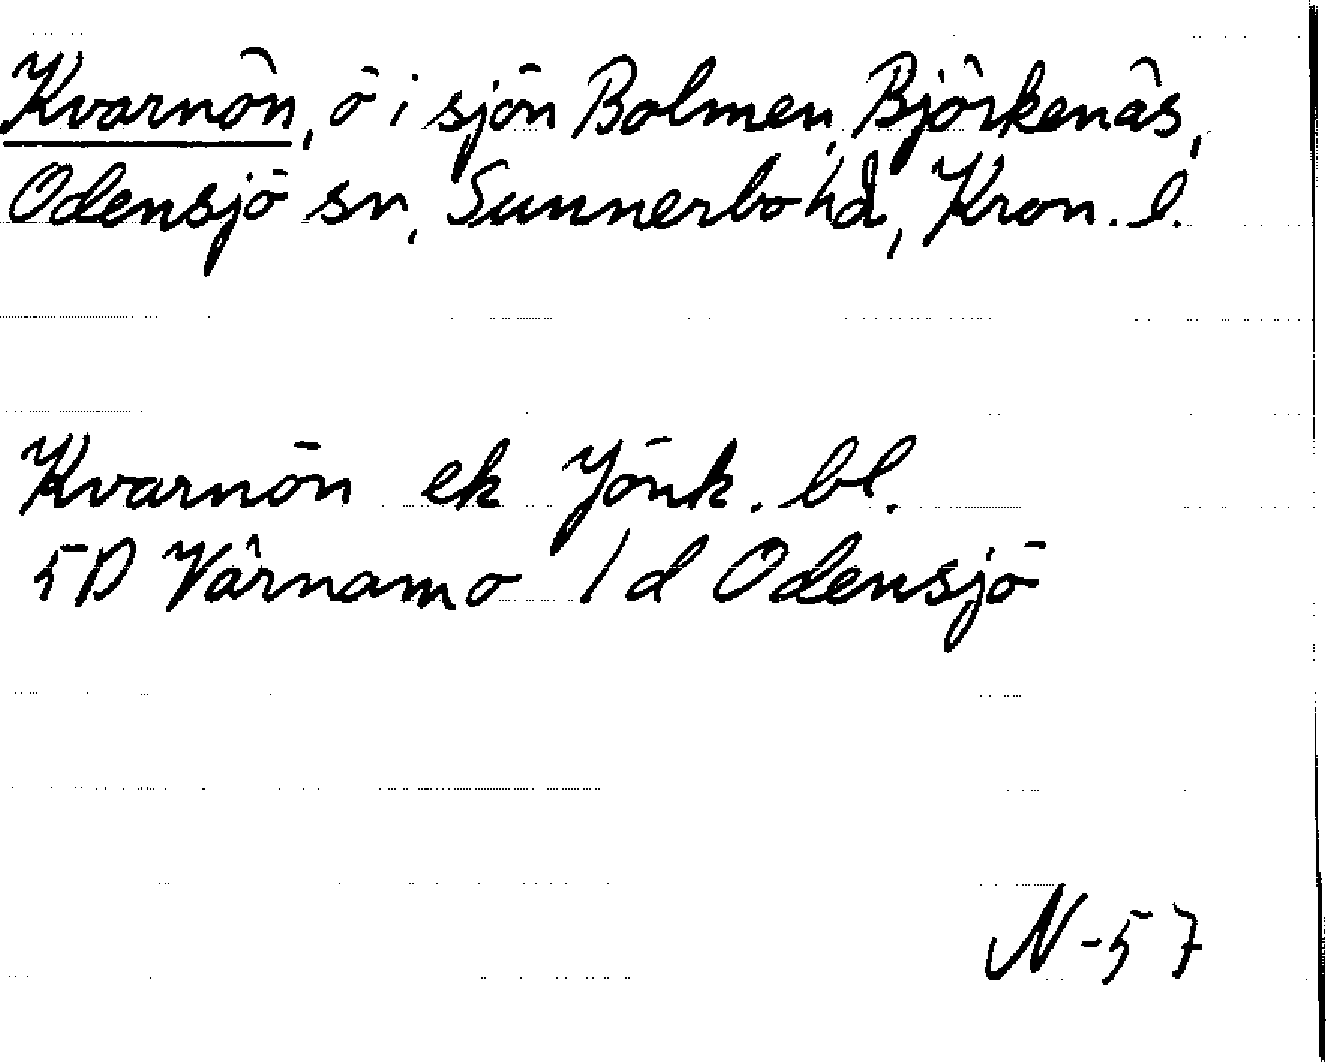 Kvarnön, ö i sjön Bolmen, Björkenäs,
Odensjö sn, Sunnerbo hd, Kron. l.
Kvarnön ek Jönk. bl.
5D Värnamo 1d Odensjö
N-57